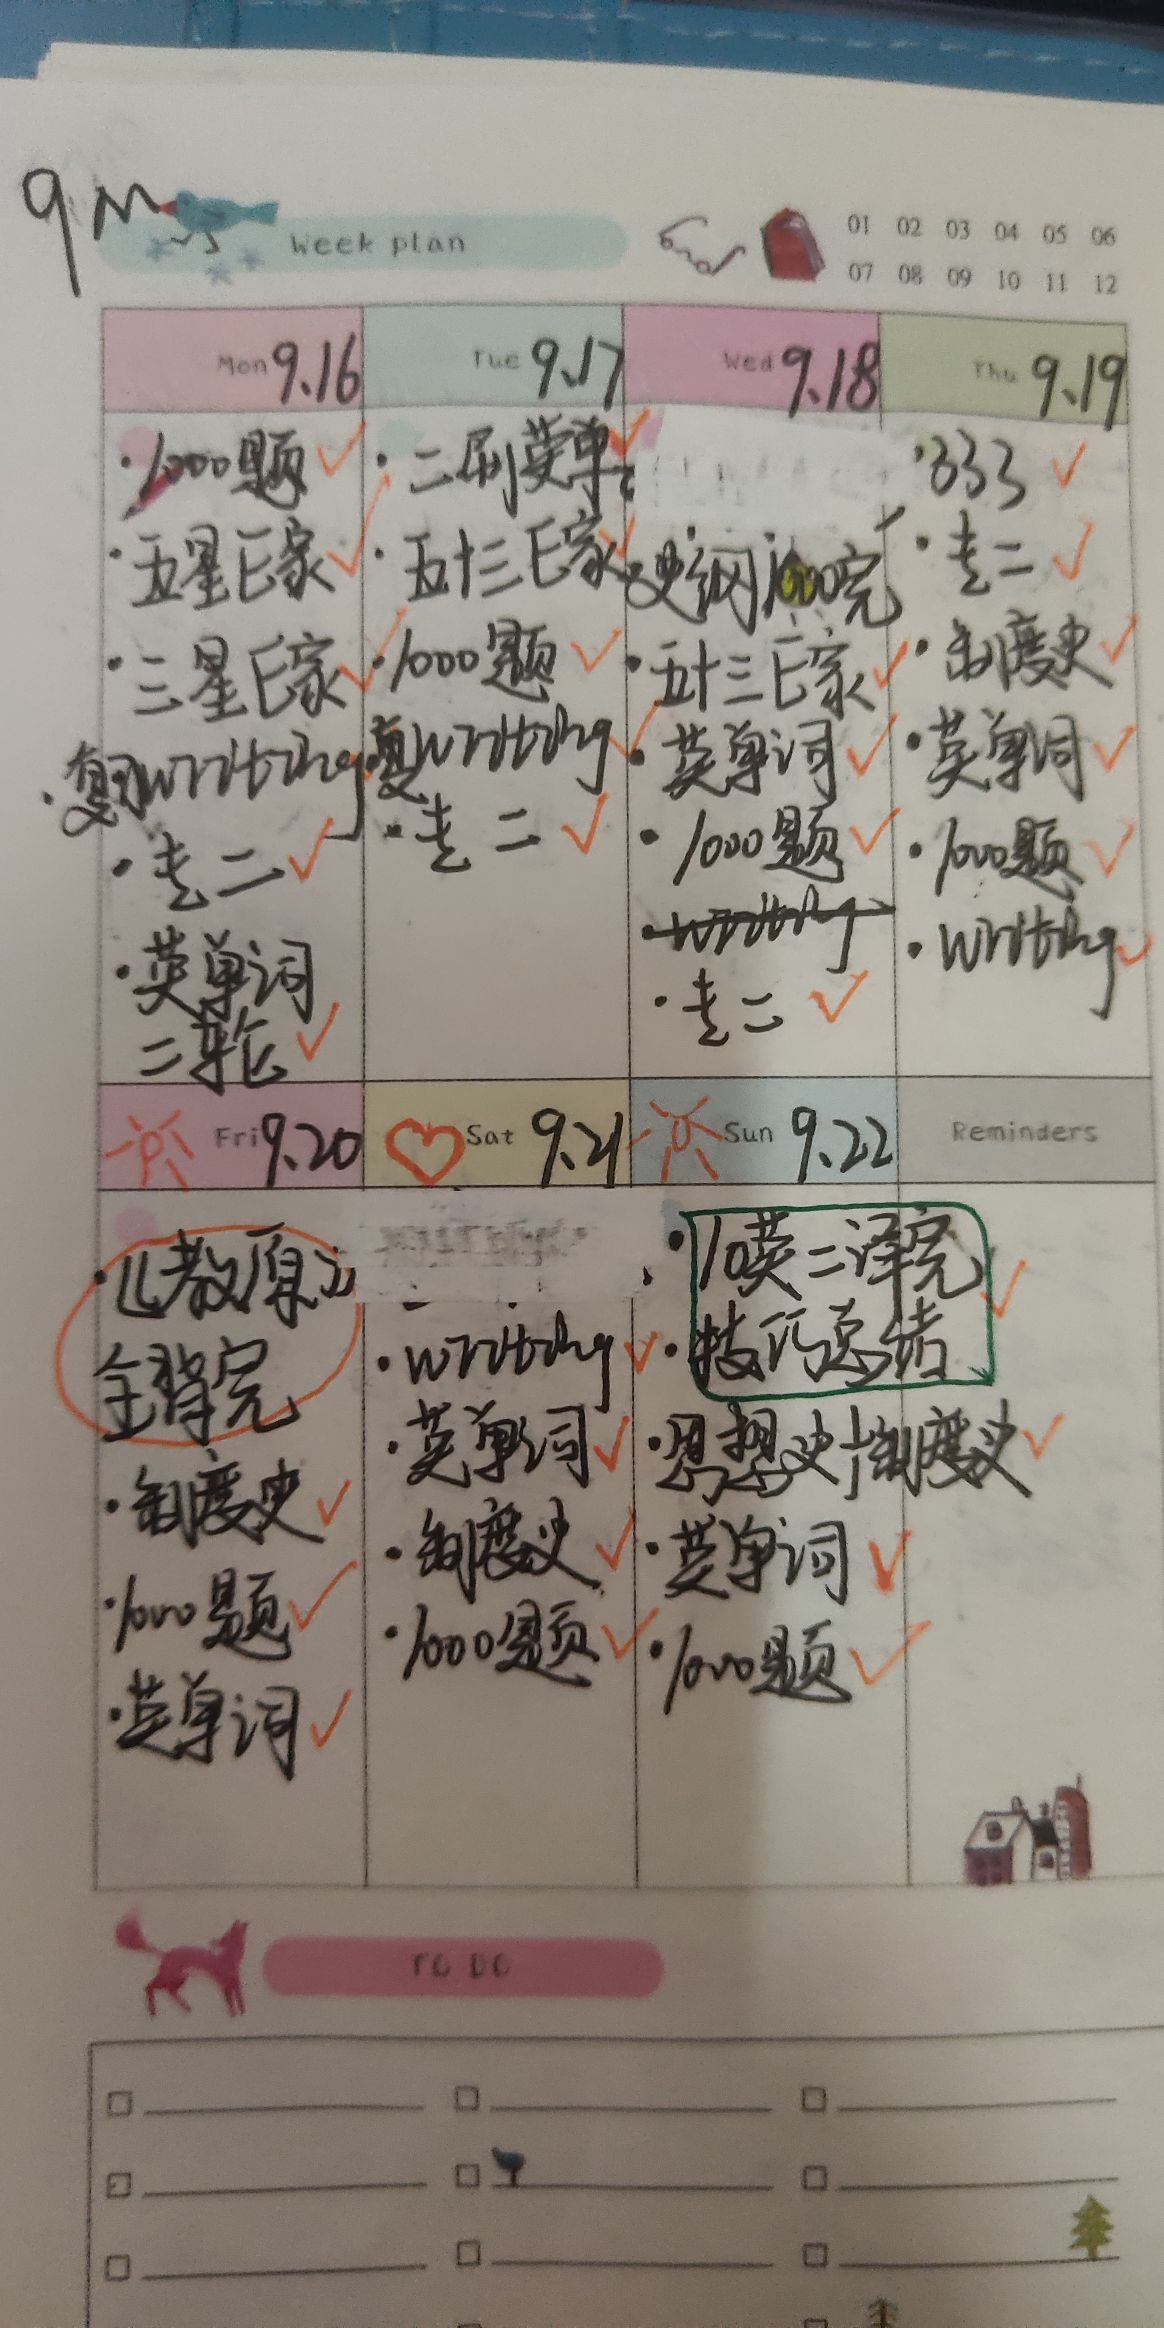 9M
Week plan
01 02 03 04 05 06
07 08 09 10 11 12
Mon 9.16
·1000题
·五星匚家
·三星匚家
·复习writting
·走二
·英单词
二轮
Tue 9.17
·二刷英单
·五十三匚家
·1000题
复writting
·走二
Wed 9.18
史纲1000完
·五十三匚家
·英单词
·1000题
·writting
·走二
Thu 9.19
·333
·走二
·制度史
·英单词
·1000题
·writting
Fri 9.20
教原
全背完
·制度史
·1000题
·英单词
Sat 9.21
·writting
·英单词
·制度史
·1000题
Sun 9.22
·10英二译完
·技巧总结
·思想史+制度史
·英单词
·1000题
Reminders
TO DO